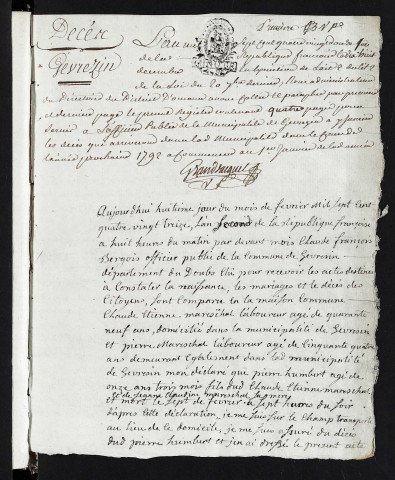 Décès
Gevrezin
Première
L'an mil Sept Cent quatre vingt douze
République française
decembre
de la loi du 20 7bre dernier, Nous administrateur
du Directoire du District D'ornans avons Cotté et paraphé par premier
et dernier page le present Registre contenant quatre pages pour
servir a L'officier Public de la Municipalité de Gevrezin a y inscrire
les décès qui arriveront dans lad Municipalité dans le Courant de
l'année prochaine 1792 a Commencer au 1er Janvier de lad année
Aujourd'hui huitieme jour du mois de fevrier Mil Sept Cent
quatre vingt treize, l'an Second de la République françoise
a huit heures du matin par devant moi Claude françois
officier public de la Commune de Gevresin
département du Doubs Elu pour recevoir les actes destinés
à Constater la naissance, les mariages et le décès des
Citoyens, sont Comparu en la maison Commune
Claude Etienne mareschal laboureur agé de quarante
neuf ans, domicilié dans la municipalité de Gevresin
et pierre Mareschal laboureur agé de Cinquante quatre
ans demeurant Egalement dans lad municipalité
de Gevresin mon déclaré que pierre humbert agé de
onze ans trois mois fils dud Claude Etienne mareschal
et de Claudine mareschal sa mère
et mort le Sept de fevrier a Sept heures du Soir
d'apres Cette déclaration, je me suis sur le Champ transporté
au lieu de le domicile, je me suis assuré du décès
dud pierre humbert et j'en ai dressé le present acte